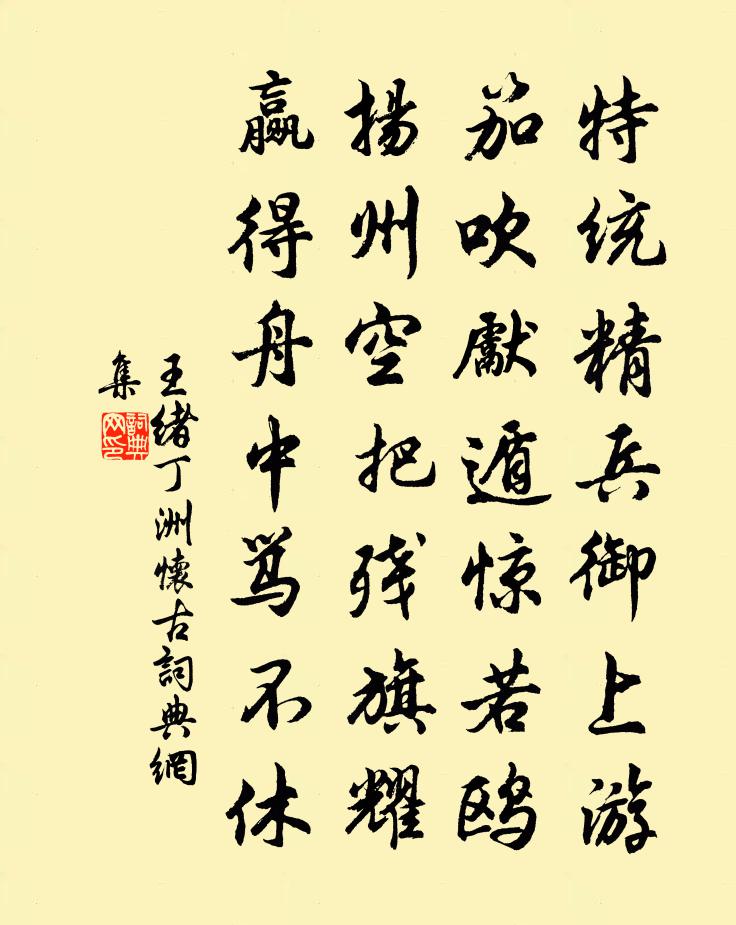 特统精兵御上游
笳吹獻遁惊若鸥
揚州空把残旗耀
赢得舟中骂不休
王绪丁洲懷古詞典網
集
詞典网印